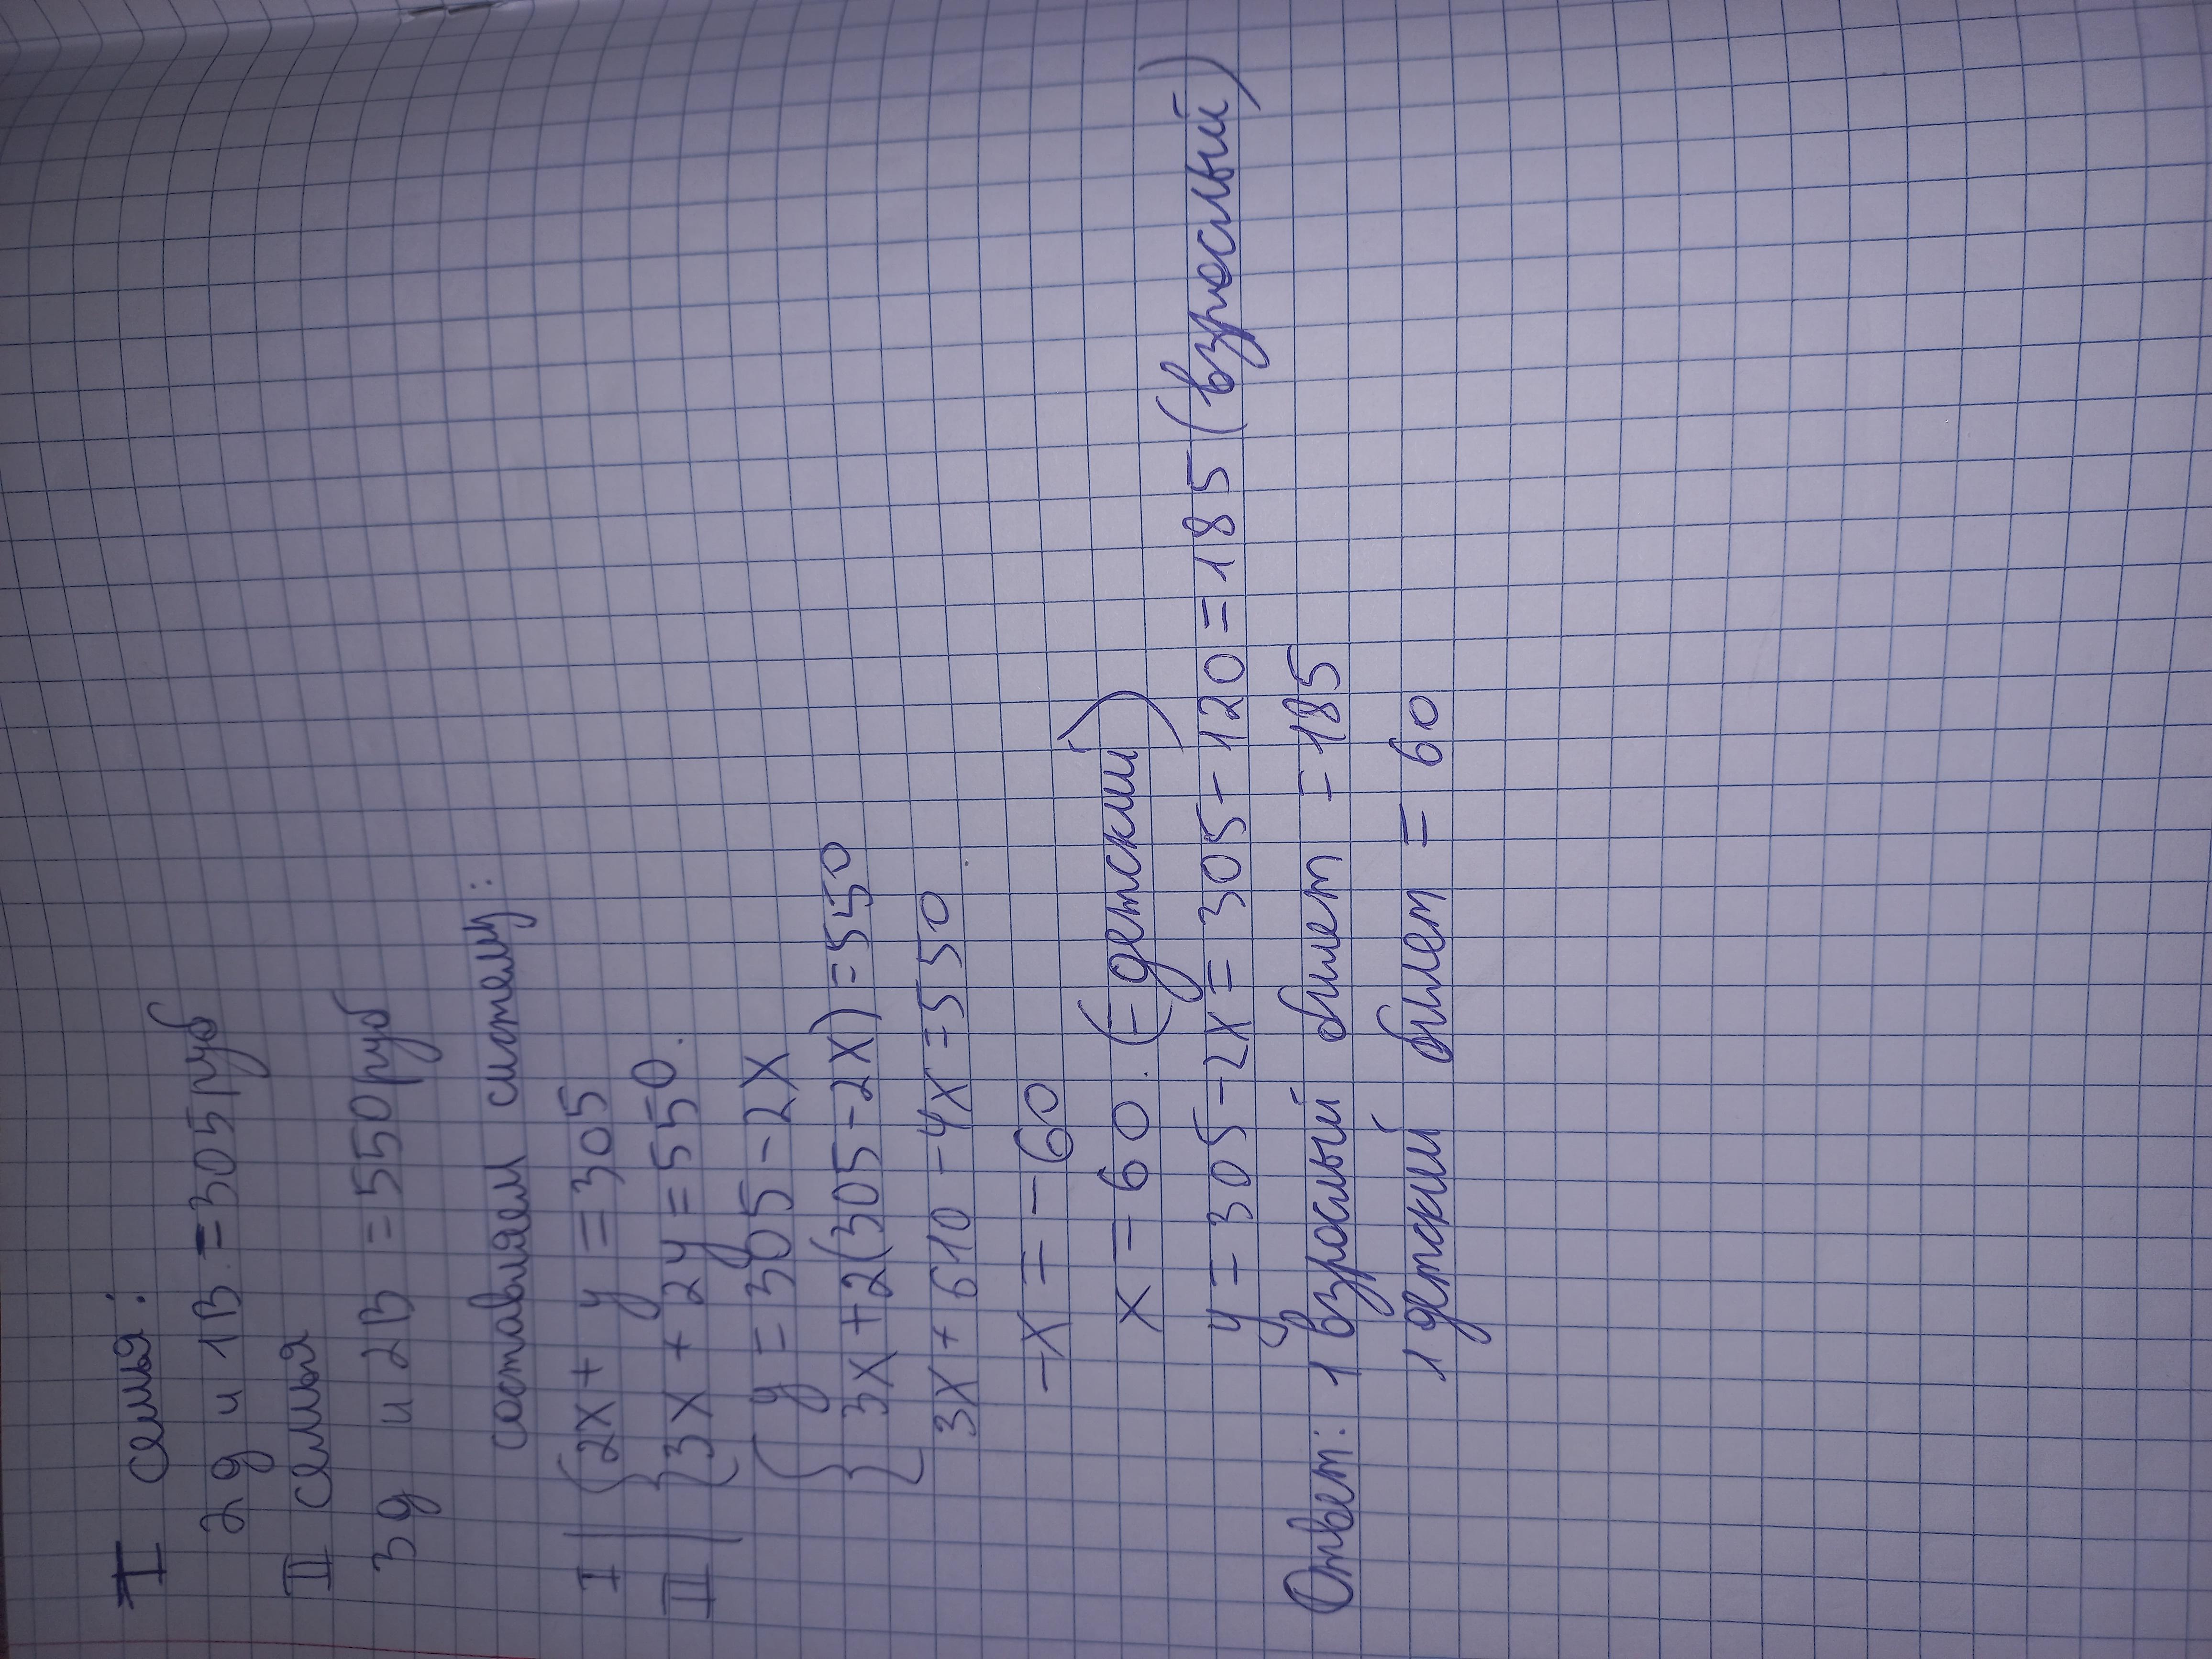 I семья:
2д и 1В. = 305 руб
II семья
3д и 2В = 550 руб
составляем систему:
I | {2x + y = 305
II | {3x + 2y = 550.
{y = 305 - 2x
{3x + 2(305 - 2x) = 550
3x + 610 - 4x = 550
-x = -60
x = 60. (- детский)
y = 305 - 2x = 305 - 120 = 185 (взрослый)
Ответ: 1 взрослый билет = 185
1 детский билет = 60